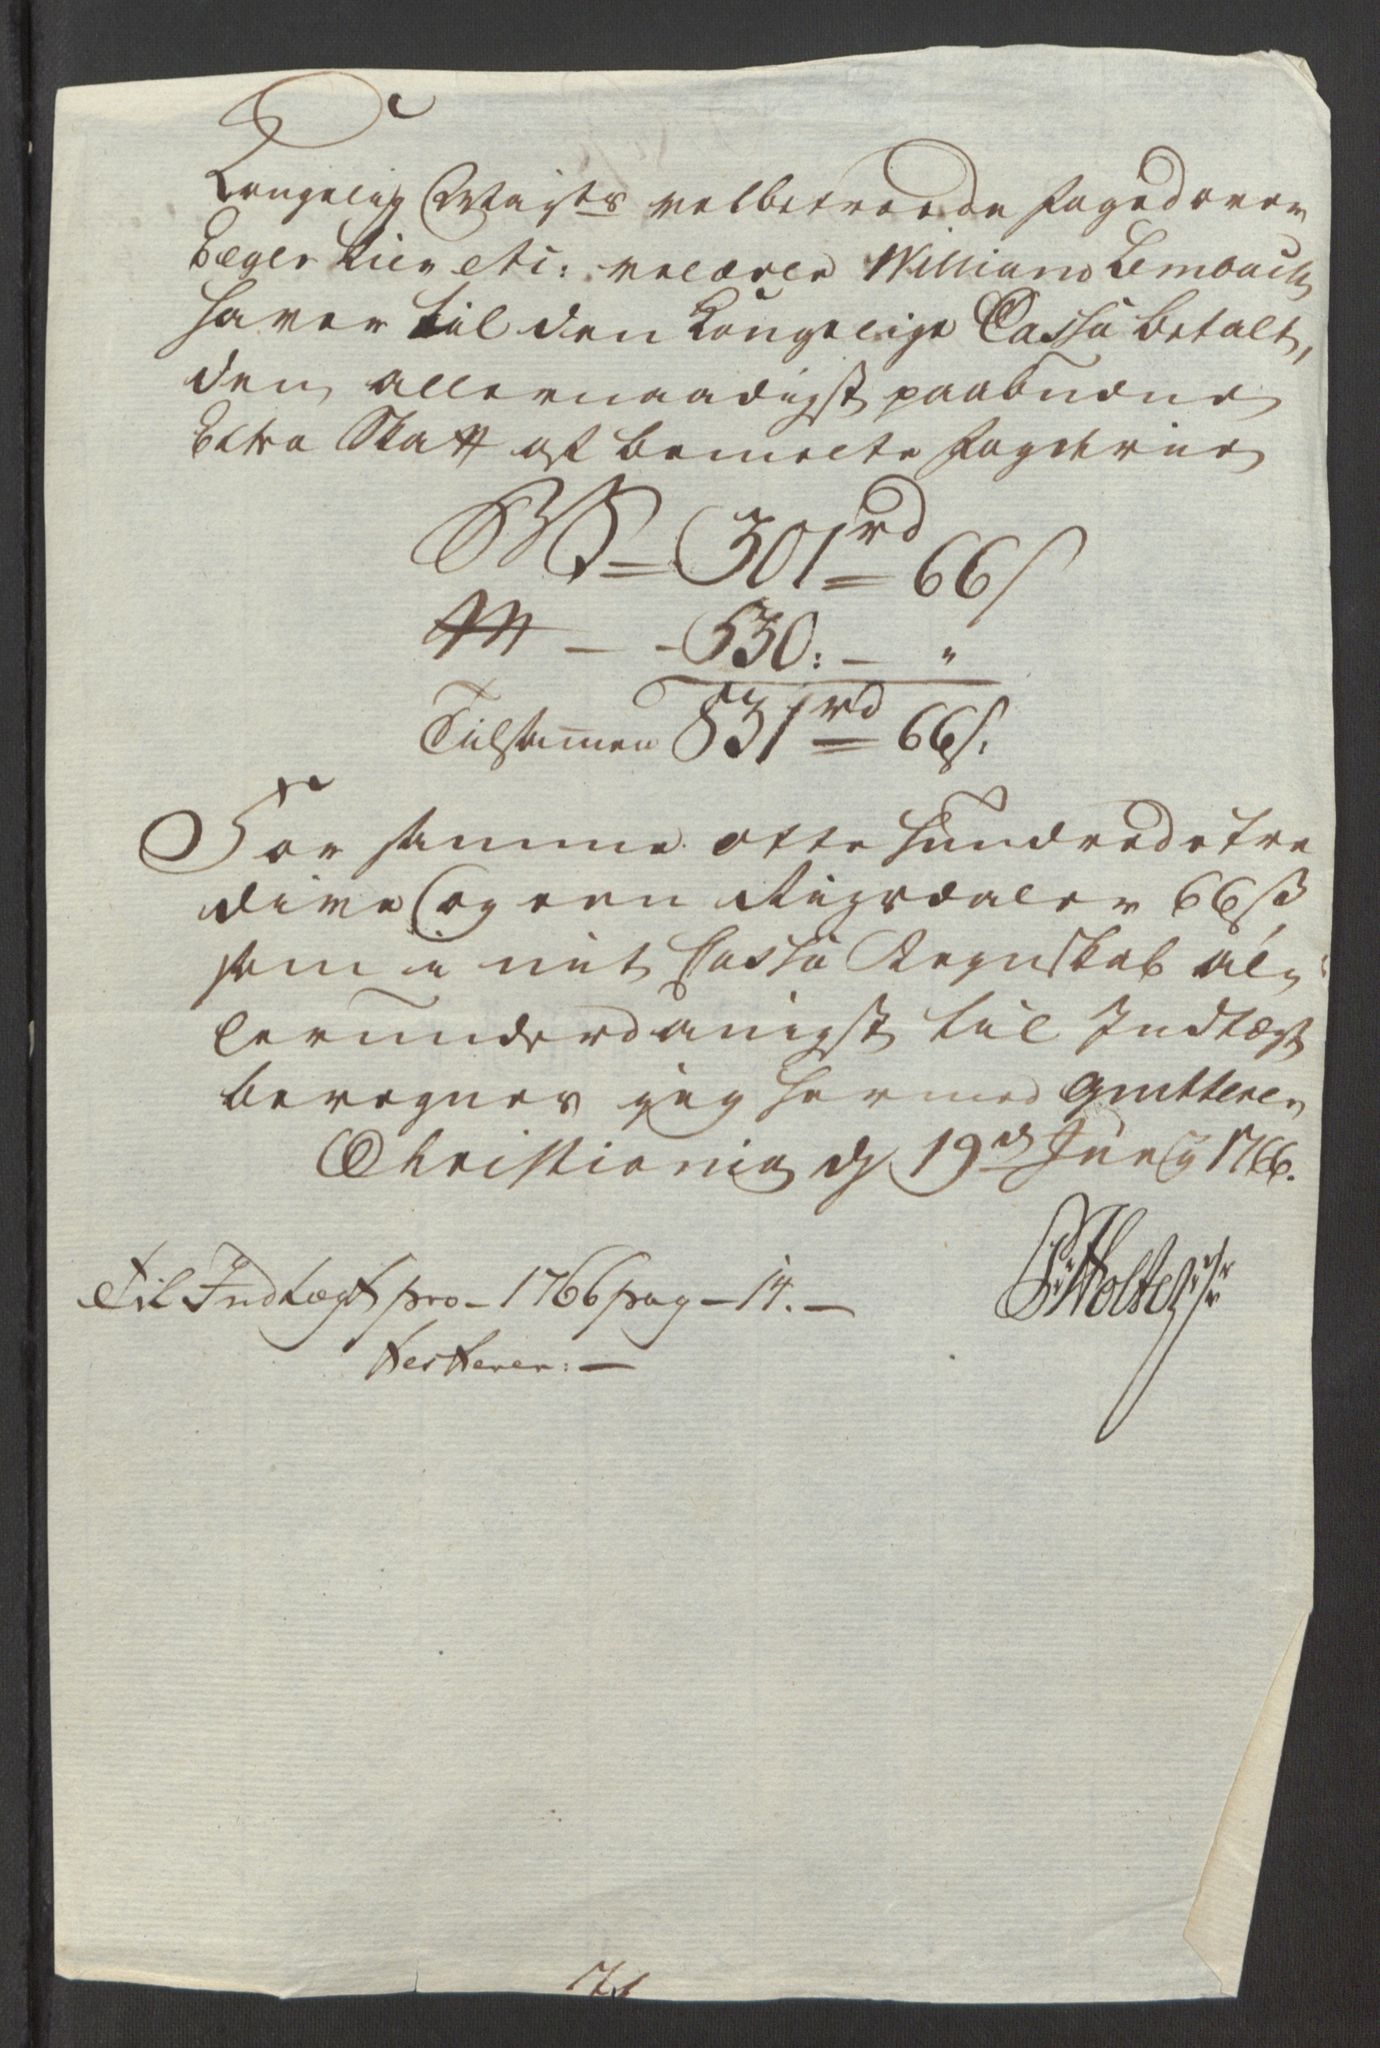 Kongelig Mayts velbetroede foged over
Eeger Lier etc: velædle William Lembach
haver til den Kongelige Cassa betalt,
den allernaadigst paabudne
Extra Skatt af bemelte fogderie
= 301rd = 66s
M — - 530: — "
Tilsammen 831rd = 66s.
For samme otte hundrede tre
dive og een Rigsdaler 66s
som i mit Cassa Regnskab al-
lerunderdanigst til Indtægt
beregnes jeg hermed qvitterer
Christiania d 19de Juny 1766.
Holter
Til Indtægt pro - 1766 pag - 14. —
testerer: —